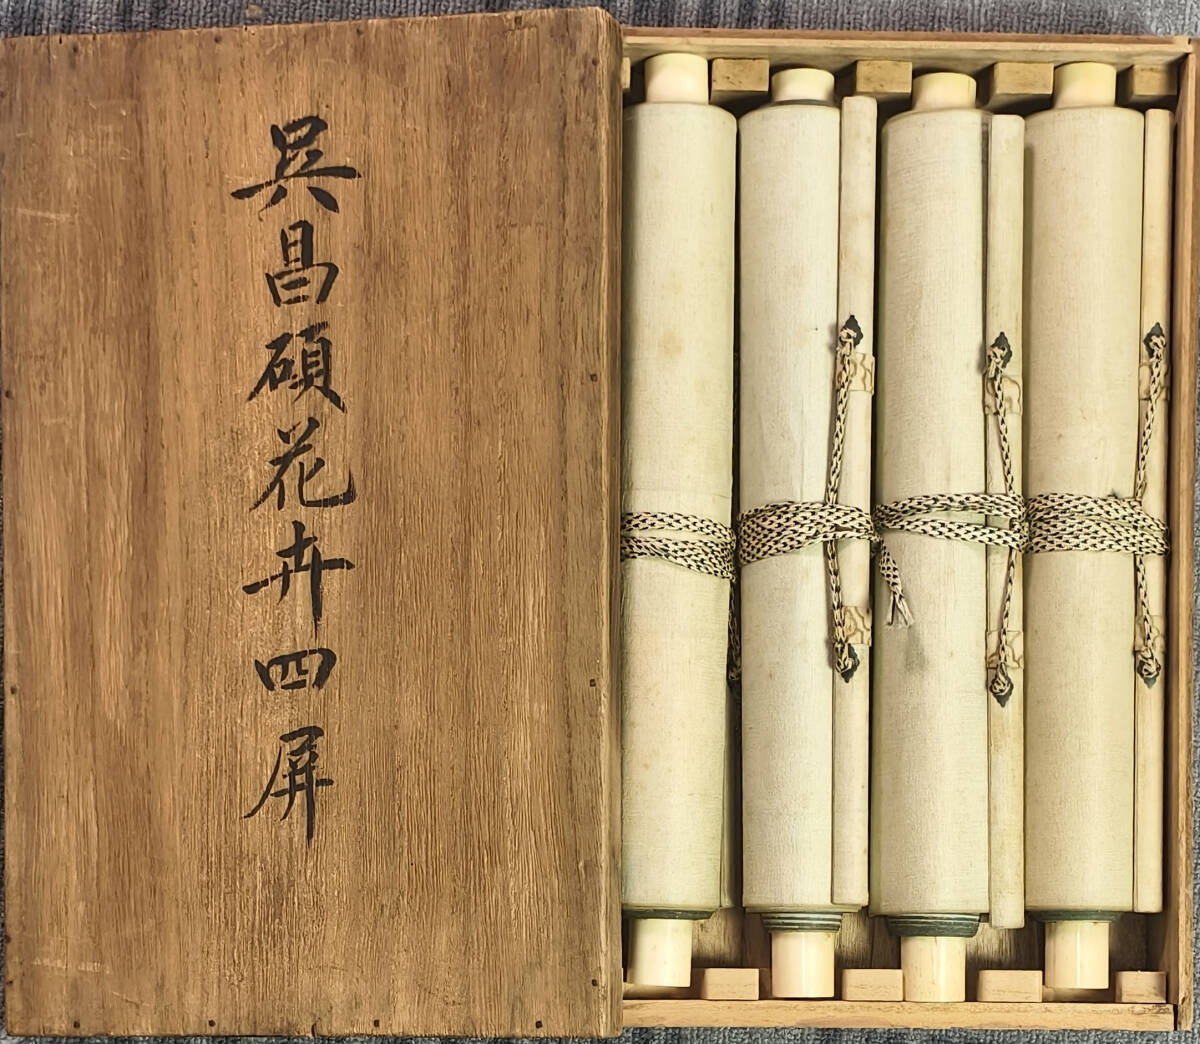 吴昌碩花卉四屏